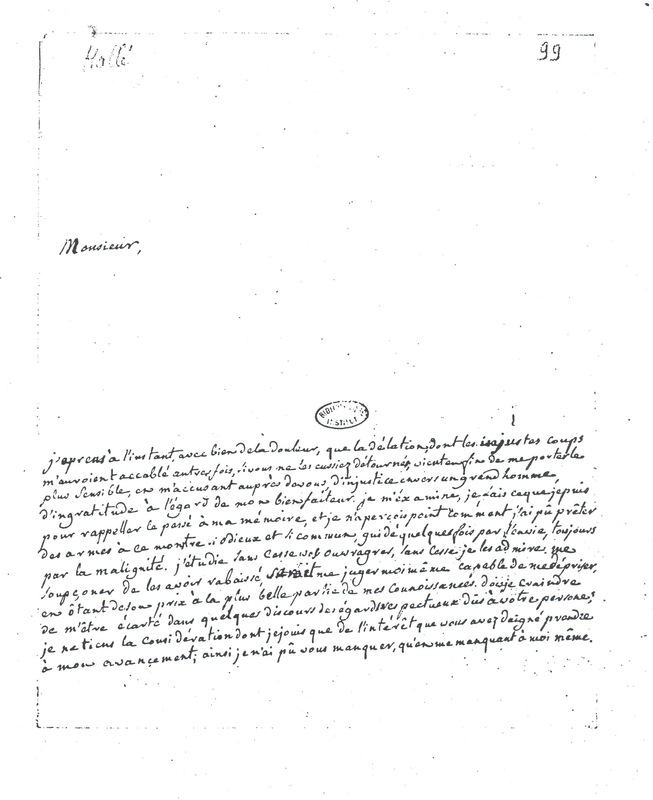 Hallé
99
Monsieur,
BIBLIOTHEQUE
INSTITUT
j'aprens à l'instant, avec bien de la douleur, que la délation, dont les injustes coups
m'auroient accablé autres fois, si vous ne les eussiez détournés, vient enfin de me porter le
plus sensible, en m'accusant aupres de vous, d'injustice envers un grand homme,
d'ingratitude à l'égard de mon bienfaiteur. je m'éxamine, je fais ce que je puis
pour rappeller le passé à ma mémoire, et je n'aperçois point comment j'ai pû prêter
des armes à ce monstre si odieux et si commun, guidé quelques fois par l'envie, toujours
par la malignité. j'étudie sans cesse vos ouvrages, sans cesse je les admire, me
soupçoner de les avoir rabaissé, seroit me juger moi même capable de me dépriser,
en ôtant de son prix à la plus belle partie de mes connoissances. dois je craindre
de m'être écarté dans quelques discours des égards respectueux dûs à vôtre persone;
je ne tiens la considération dont je jouis que de l'intérêt que vous avez deigné prendre
à mon avancement; ainsi je n'ai pû vous manquer, qu'en me manquant à moi même.